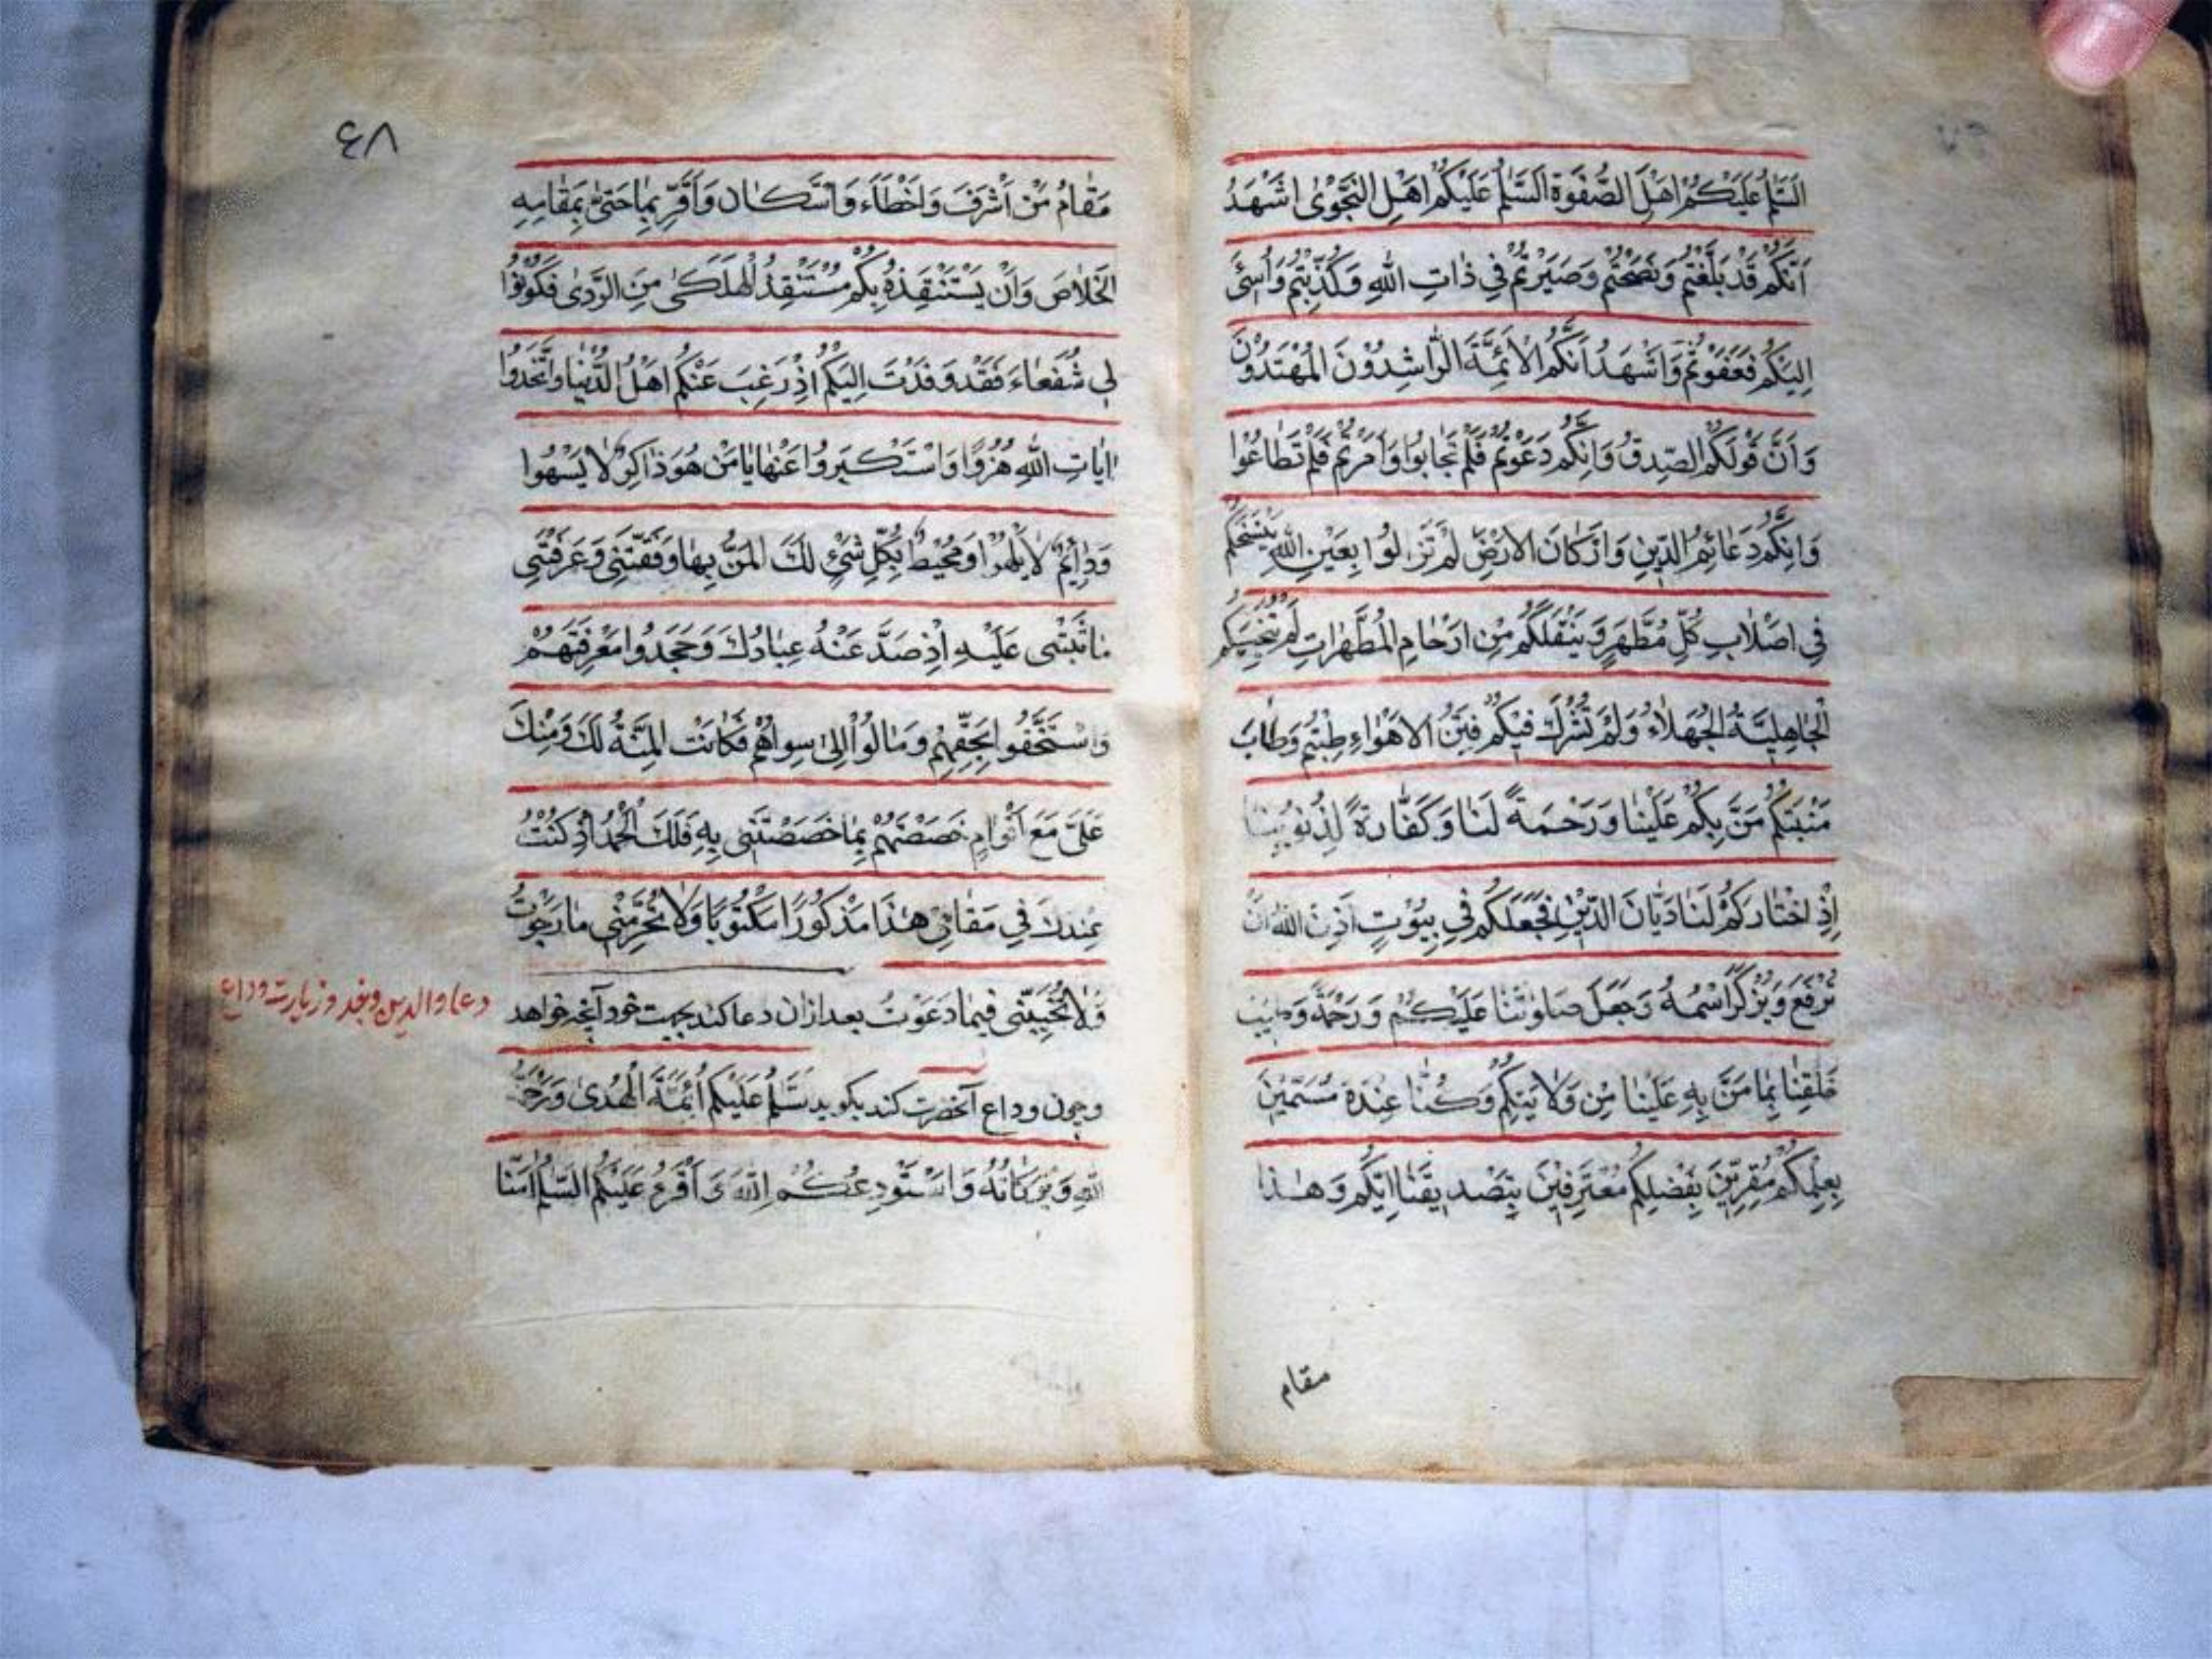 اَلسَّلٰمُ عَلَيْكُمْ اَهْلَ الصَّفْوَةِ اَلسَّلٰمُ عَلَيْكُمْ اَهْلَ النَّجْوٰى اَشْهَدُ
اَنَّكُمْ قَدْ بَلَّغْتُمْ وَنَصَحْتُمْ وَصَبَرْتُمْ فِي ذَاتِ اللّٰهِ وَكُذِّبْتُمْ وَاُسِئَ
اِلَيْكُمْ فَعَفَوْتُمْ وَاَشْهَدُ اَنَّكُمُ الْاَئِمَّةَ الرَّاشِدُوْنَ الْمُهْتَدُوْنَ
وَاَنَّ قَوْلَكُمُ الصِّدْقُ وَاَنَّكُمْ دَعَوْتُمْ فَلَمْ تُجَابُوا وَاَمَرْتُمْ فَلَمْ تُطَاعُوْا
وَاَنَّكُمْ دَعَائِمُ الدِّيْنِ وَاَرْكَانَ الْاَرْضِ لَمْ تَزَالُوا بِعَيْنِ اللّٰهِ يَنْسَخُكُمْ
فِي اَصْلَابِ كُلِّ مُطَهَّرٍ وَيَنْقُلُكُمْ مِنْ اَرْحَامِ الْمُطَهَّرَاتِ لَمْ تُنَجِّسْكُمُ
الْجَاهِلِيَّةُ الْجُهَلَاءُ وَلَمْ تَشْرَكْ فِيْكُمْ فِتَنُ الْاَهْوَاءِ طِبْتُمْ وَطَابَ
مَنْبَتُكُمْ مَنَّ بِكُمْ عَلَيْنَا وَرَحْمَةً لَنَا وَكَفَّارَةً لِذُنُوبِنَا
اِذْ اخْتَارَكُمْ لَنَا دَيَّانَ الدِّيْنِ فَجَعَلَكُمْ فِي بُيُوْتٍ اَذِنَ اللّٰهُ اَنْ
تُرْفَعَ وَيُذْكَرَ اسْمُهُ وَجَعَلَ صَلَوٰتَنَا عَلَيْكُمْ وَرَحْمَةً وَطَيَّبَ
خَلْقَنَا بِمَا مَنَّ بِهِ عَلَيْنَا مِنْ وَلَايَتِكُمْ وَكُنَّا عِنْدَهُ مُسَمَّيْنَ
بِعِلْمِكُمْ مُقِرِّيْنَ بِفَضْلِكُمْ مُعْتَرِفِيْنَ بِتَصْدِيقِنَا اِيَّاكُمْ وَهٰذَا
مقام
٤٨
مَقَامُ مَنْ اَشْرَفَ وَاَخْطَاَءَ وَاسْتَكَانَ وَاَقَرَّ بِمَا جَنٰى بِمَقَامِهِ
الْخَلَاصَ وَاَنْ يَسْتَنْقِذَهُ بِكُمْ مُسْتَنْقِذُ الْهَلْكٰى مِنَ الرَّدٰى فَكُوْنُوْا
لِي شُفَعَاءَ فَقَدْ وَفَدْتُ اِلَيْكُمْ اِذْ رَغِبَ عَنْكُمْ اَهْلُ الدُّنْيَا وَاتَّخَذُوا
اٰيَاتِ اللّٰهِ هُزُوًا وَاسْتَكْبَرُوا عَنْهَا يَا مَنْ هُوَ ذَاكِرٌ لَا يَسْهُوا
وَدَائِمٌ لَا يَلْهُوْا وَمُحِيْطٌ بِكُلِّ شَيْءٍ لَكَ الْمَنُّ بِهَا وَفَّقْتَنِي وَعَرَّفْتَنِي
مَا ثَبَّتَّنِى عَلَيْهِ اِذْ صَدَّ عَنْهُ عِبَادُكَ وَجَحَدُوا مَعْرِفَتَهُمْ
وَاسْتَخَفُّوا بِحَقِّهِمْ وَمَالُوْا اِلٰى سِوَاهُمْ فَكَانَتِ الْمِنَّةُ لَكَ وَمِنْكَ
عَلَيَّ مَعَ اَقْوَامٍ خَصَصْتَهُمْ بِمَا خَصَصْتَنِي بِهِ فَلَكَ الْحَمْدُ اِذْ كُنْتُ
عِنْدَكَ فِي مَقَامِي هٰذَا مَذْكُوْرًا مَكْتُوْبًا وَلَا تَحْرِمْنِي مَا رَجَوْتُ
وَلَا تُخَيِّبْنِي فِيمَا دَعَوْتُ بعد ازان دعا كند بجهت خود آنچه خواهد
دعا والدين وبغد وزيارت وداع
وچون وداع آنحضرت كند بكويد سَّلَمُ عَلَيْكُمْ اَئِمَّةَ الْهُدٰى وَرَحْمَةُ
اللّٰهِ وَبَرَكَاتُهُ وَاَسْتَوْدِعُكُمُ اللّٰهَ وَاَقْرَءُ عَلَيْكُمُ السَّلٰمُ اٰمَنَّا